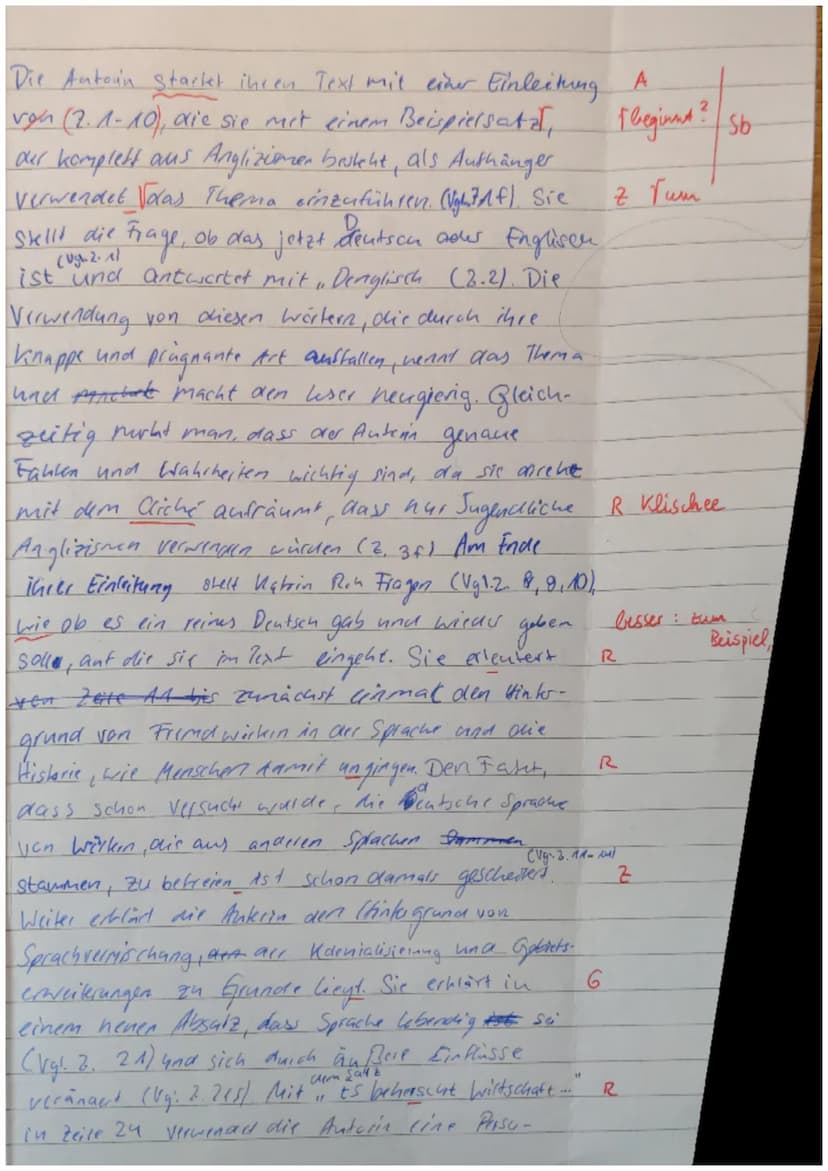 Die Autorin startet ihren Text mit einer Einleitung A
von (Z. 1-10), die sie mit einem Beispielsatz, beginnt? Sb
der komplett aus Anglizismen besteht, als Aufhänger
verwendet das Thema einzuführen. (Vgl. Z 1f). Sie Z um
stellt die Frage, ob das jetzt Deutsch oder Englisch
ist (Vgl. Z. 1) und antwortet mit „Denglisch (Z. 2). Die
Verwendung von diesen Wörtern, die durch ihre
knappe und prägnante Art ausfallen, nennt das Thema
und macht den Leser neugierig. Gleich-
zeitig merkt man, dass der Autorin genaue
Fakten und Wahrheiten wichtig sind, da sie direkt
mit dem Cliché aufräumt, dass nur Jugendliche R Klischee
Anglizismen verwenden würden (Z. 3f) Am Ende
ihrer Einleitung stellt Katrin Fragen (Vgl. Z. 8, 9, 10),
wie ob es ein reines Deutsch gab und wieder geben besser: zum Beispiel,
solle, auf die sie im Text eingeht. Sie erleutert R
von Zeile 11 bis zunächst einmal den Hinter-
grund von Fremdwörtern in der Sprache und die
Historie, wie Menschen damit umgingen. Den Fakt, R
dass schon versucht wurde, die deutsche Sprache
von Wörtern, die aus anderen Sprachen
stammen, zu befreien ist schon damals gescheitert. Z
Weiter erklärt die Autorin den Hintergrund von
Sprachvermischung, der Kolonialisierung und Gebiets-
erweiterungen zu Grunde liegt. Sie erklärt in G
einem neuen Absatz, dass Sprache lebendig sei
(Vgl. Z. 21) und sich durch äußere Einflüsse
verändert (Vgl. Z. 21f) Mit dem Satz „Es beherscht Wirtschaft..." R
in Zeile 24 verwendet die Autorin eine Perso-